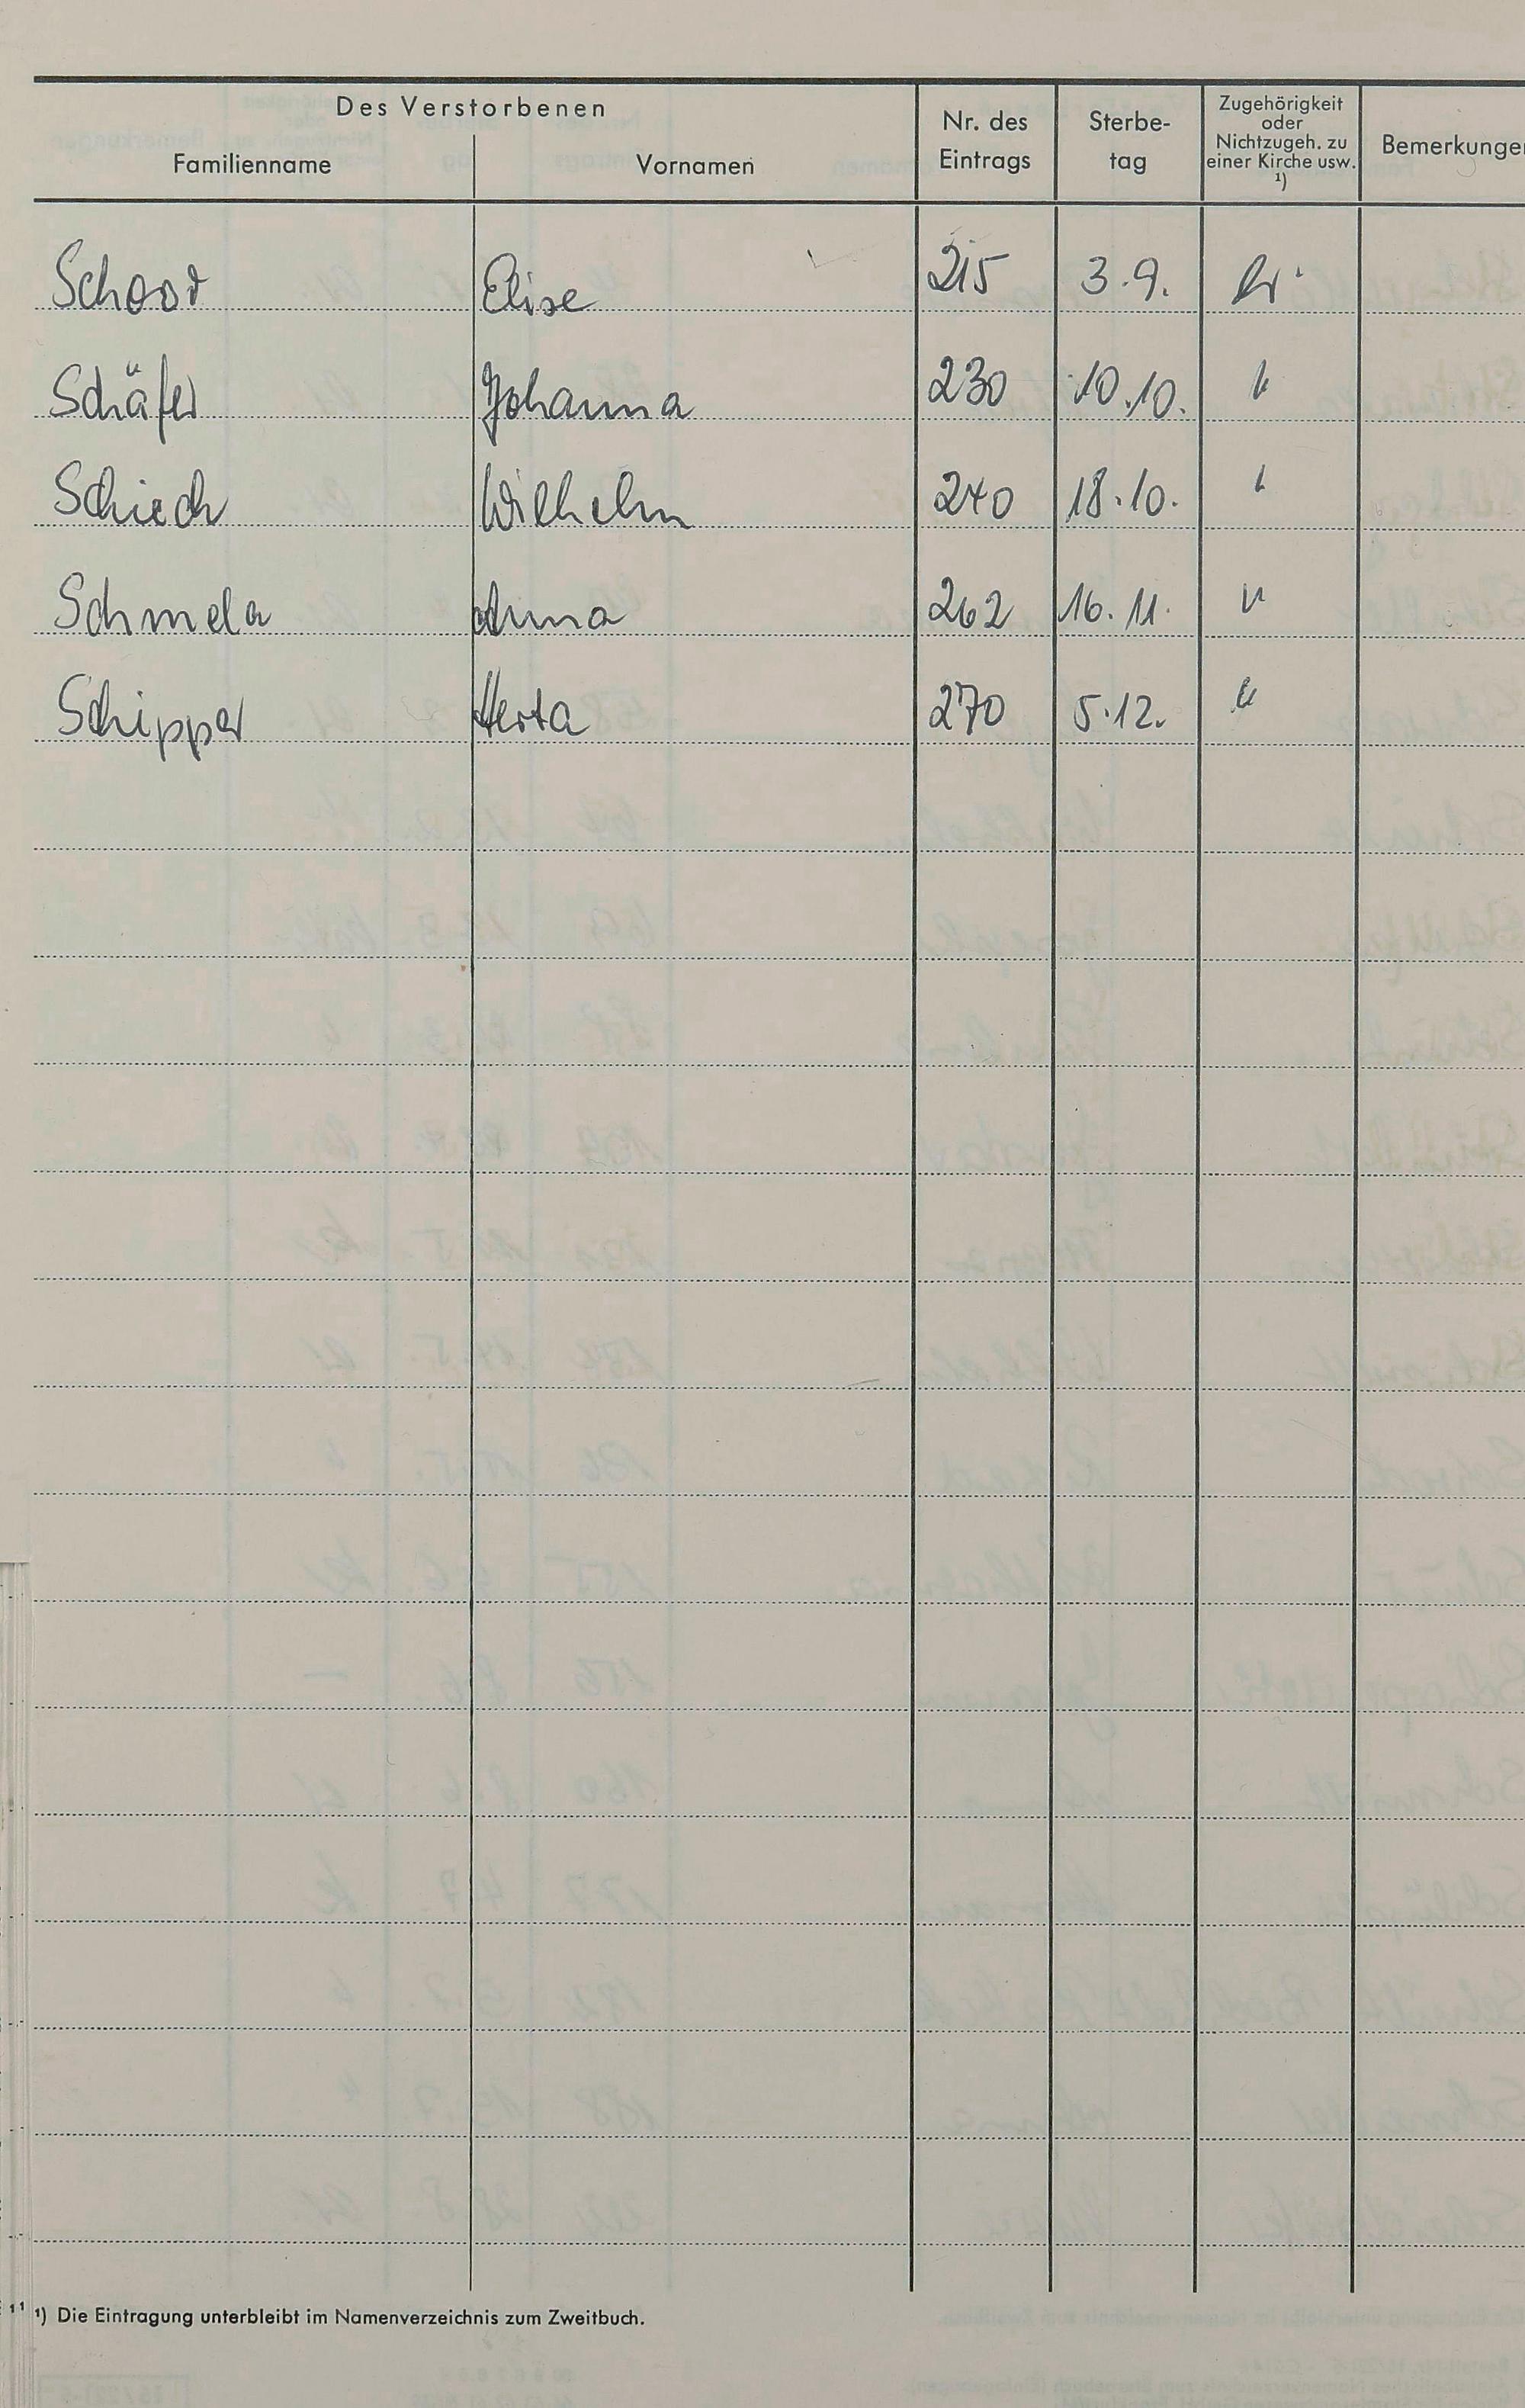 Des Verstorbenen
Familienname Vornamen Nr. des Eintrags Sterbe-tag Zugehörigkeit oder Nichtzugeh. zu einer Kirche usw. ¹) Bemerkunge
Elise 215 3.9.
Schäfer Johanna 230 10.10. "
Schiech Wilhelm 240 18.10. "
Schmela Anna 262 16.11. "
Schipper Herta 270 5.12. "
¹) Die Eintragung unterbleibt im Namenverzeichnis zum Zweitbuch.